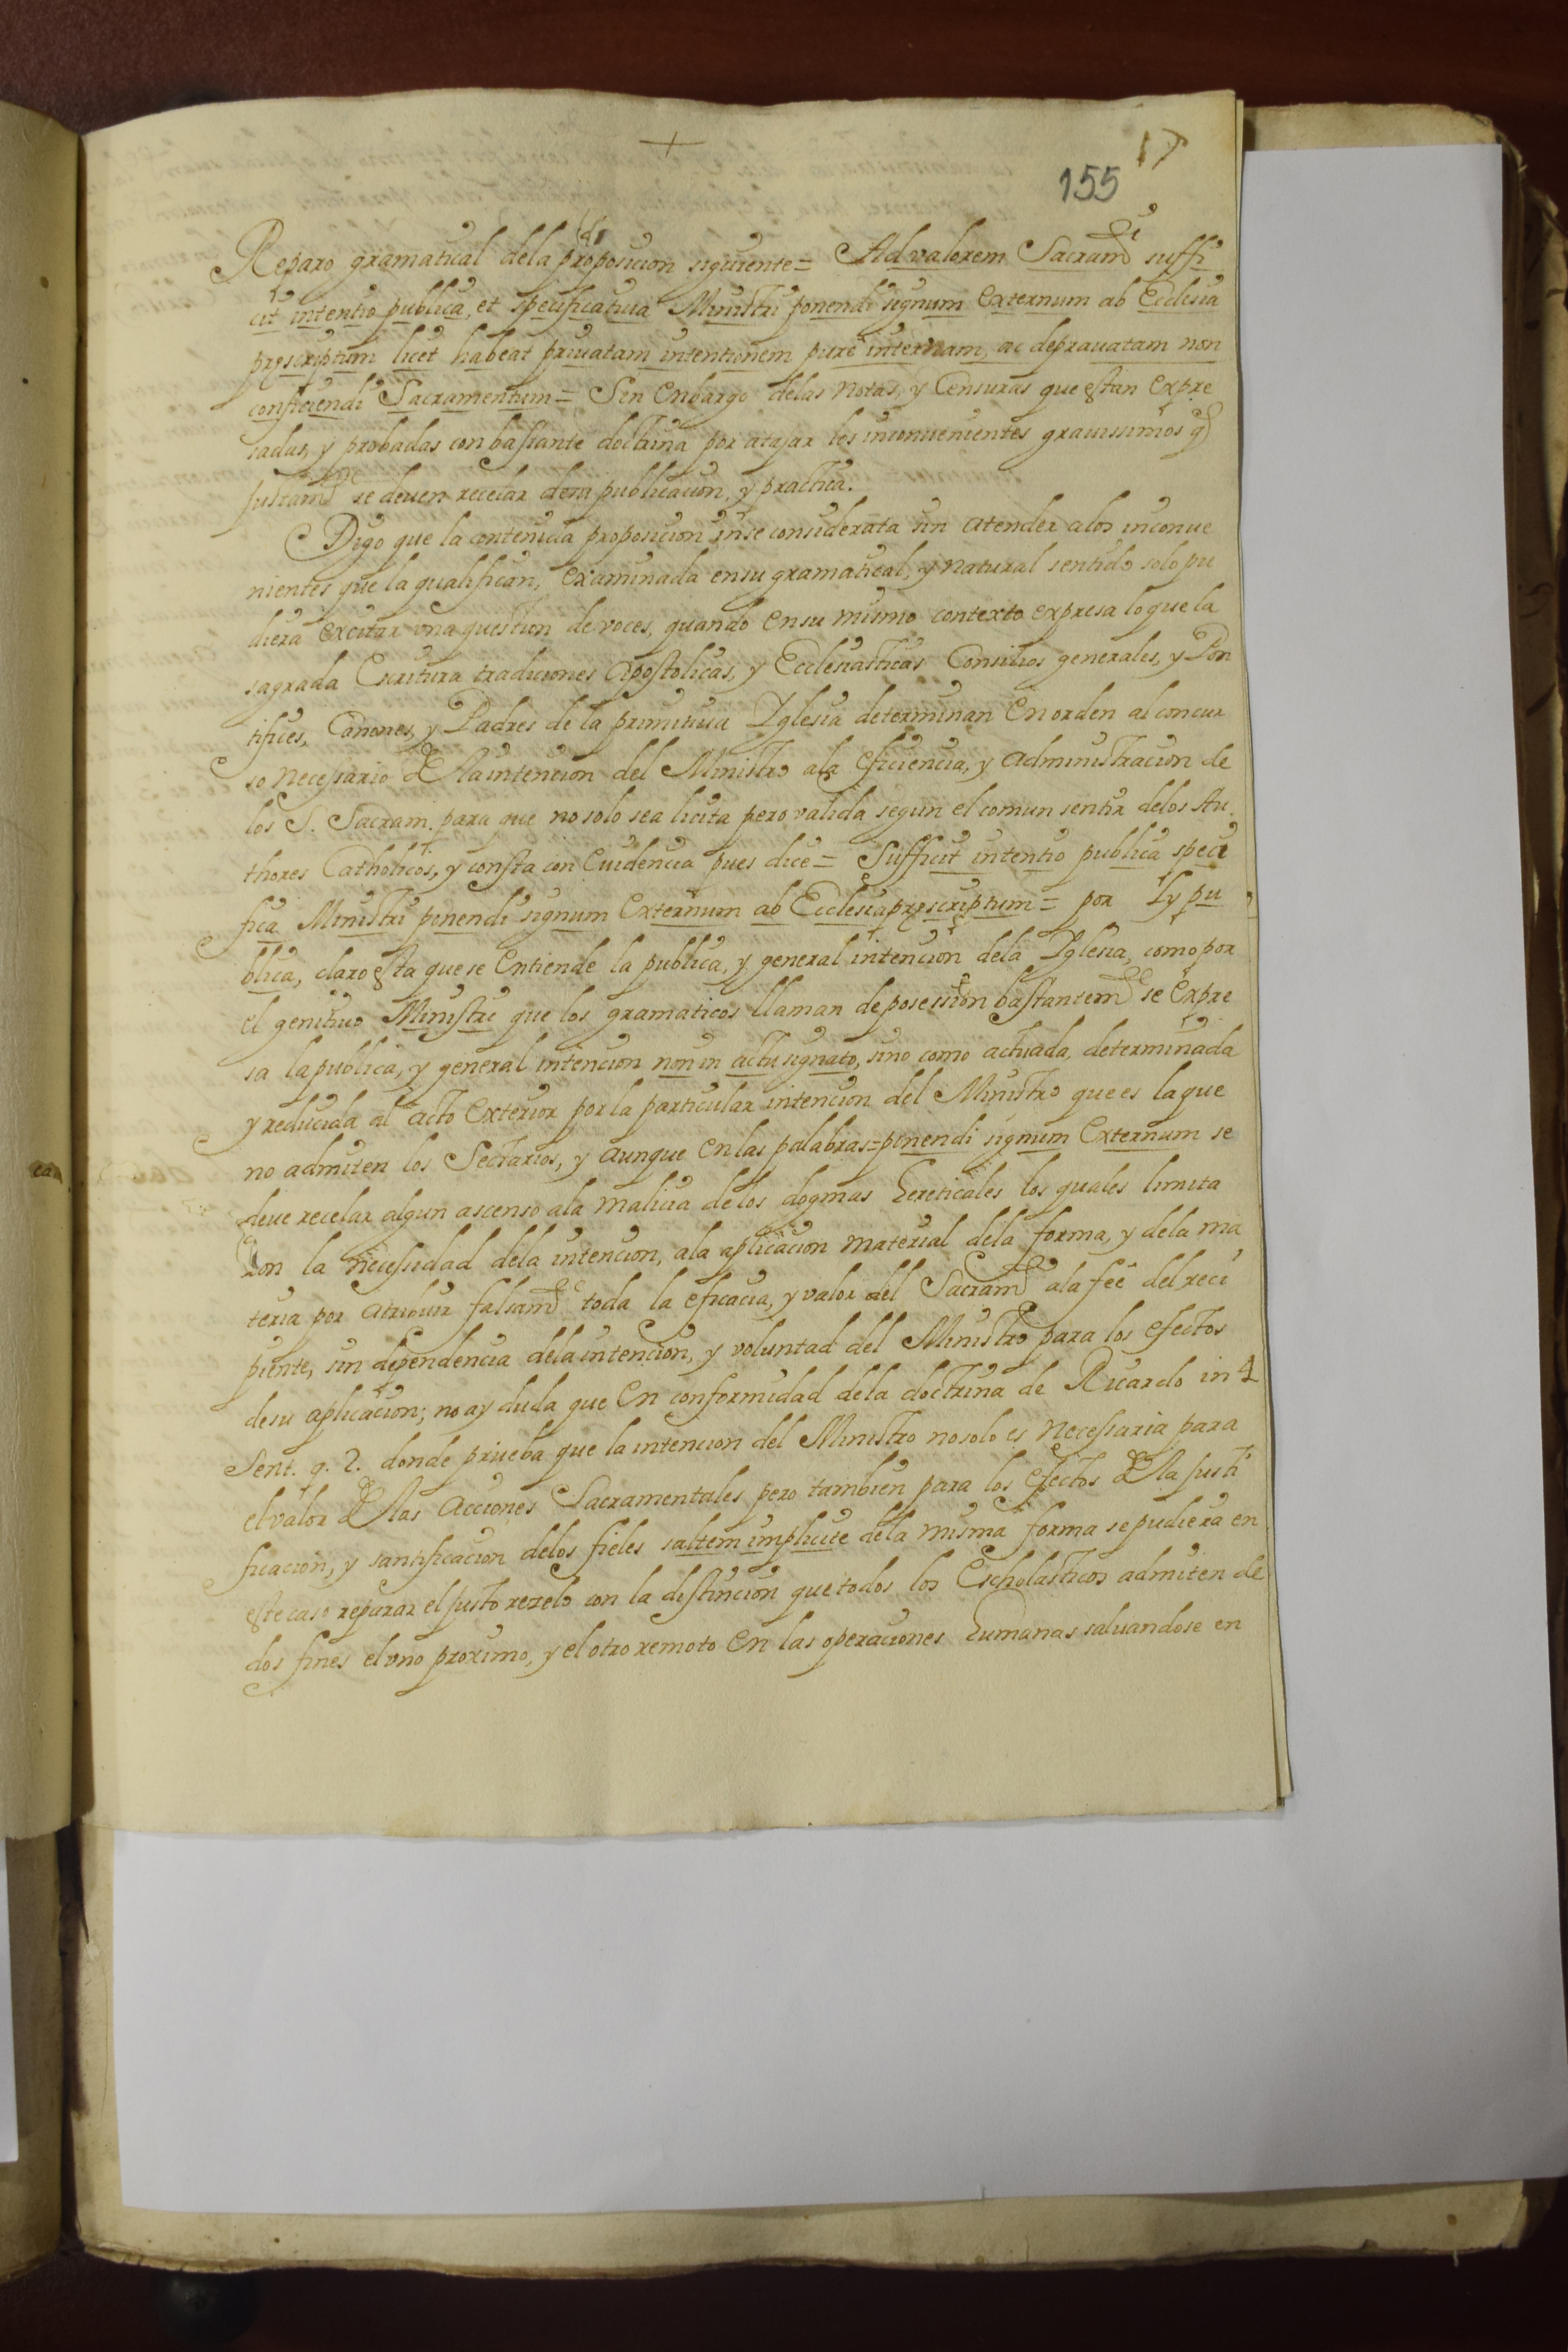 +
17
155
Reparo gramatical dela proposicion siguiente = Ad valorem Sacramti suffi
cit intentio publica, et specificatiua Ministri ponendi signum externum ab Ecclesia
prescriptum licet habeat priuatam intentionem purè internam, ac deprauatam non
conficiendi Sacramentum = Sin enbargo delas notas, y Censuras que estan expre
sadas, y probadas con bastante doctrina por atajar los inconuenientes grauissimos q
justamte se deuen recelar desu publicacion, y practica.
Digo que la contenida proposicion inse considerata sin atender alos inconue
nientes que la qualifican, examinada ensu gramatical, y natural sentido solo pu
diera excitar vna question de voces, quando ensu mismo contexto expresa lo que la
sagrada Escritura tradiciones Apostolicas, y Ecclesiasticas Consilios generales, y Pon
tifices, Canones, y Padres de la primitiua Yglesia determinan en orden al concur
so necessario de la intencion del Ministro ala eficiencia, y administracion de
los S. Sacram. para que no solo sea licita pero valida segun el comun sentir delos Au
thores Catholicos, y consta con euidencia pues dice = Sufficit intentio publica speci
fica Ministri ponendi signum externum ab Ecclesia prescriptum = por Ly pu
blica, claro esta que se entiende la publica, y general intencion dela Yglesia, como por
el genitiuo Ministri que los gramaticos llaman de posession bastantemte se expre
sa la publica, y general intencion non in actu signato, sino como actuada, determinada
y reducida al acto exterior por la particular intencion del Ministro que es la que
no admiten los Sectarios, y aunque en las palabras = ponendi signum externum se
deue recelar algun ascenso ala malicia delos dogmas hereticales los quales limita
ron la necessidad dela intencion, ala aplicacion material dela forma, y dela ma
teria por atribuir falsamte toda la eficacia, y valor del Sacramto ala feè del reci
piente, sin dependencia dela intencion, y voluntad del Ministro para los efectos
desu aplicacion; no ay duda que en conformidad dela doctrina de Ricardo in 4
Sent. q. 2. donde prueba que la intencion del Ministro no solo es necessaria para
el valor de las acciones Sacramentales pero tambien para los efectos de la justi
ficacion, y santificacion delos fieles saltem implicite dela misma forma se pudiera en
este caso reparar el justo rezelo con la distincion que todos los Escholasticos admiten de
dos fines el vno proximo, y el otro remoto en las operaciones humanas saluandose en